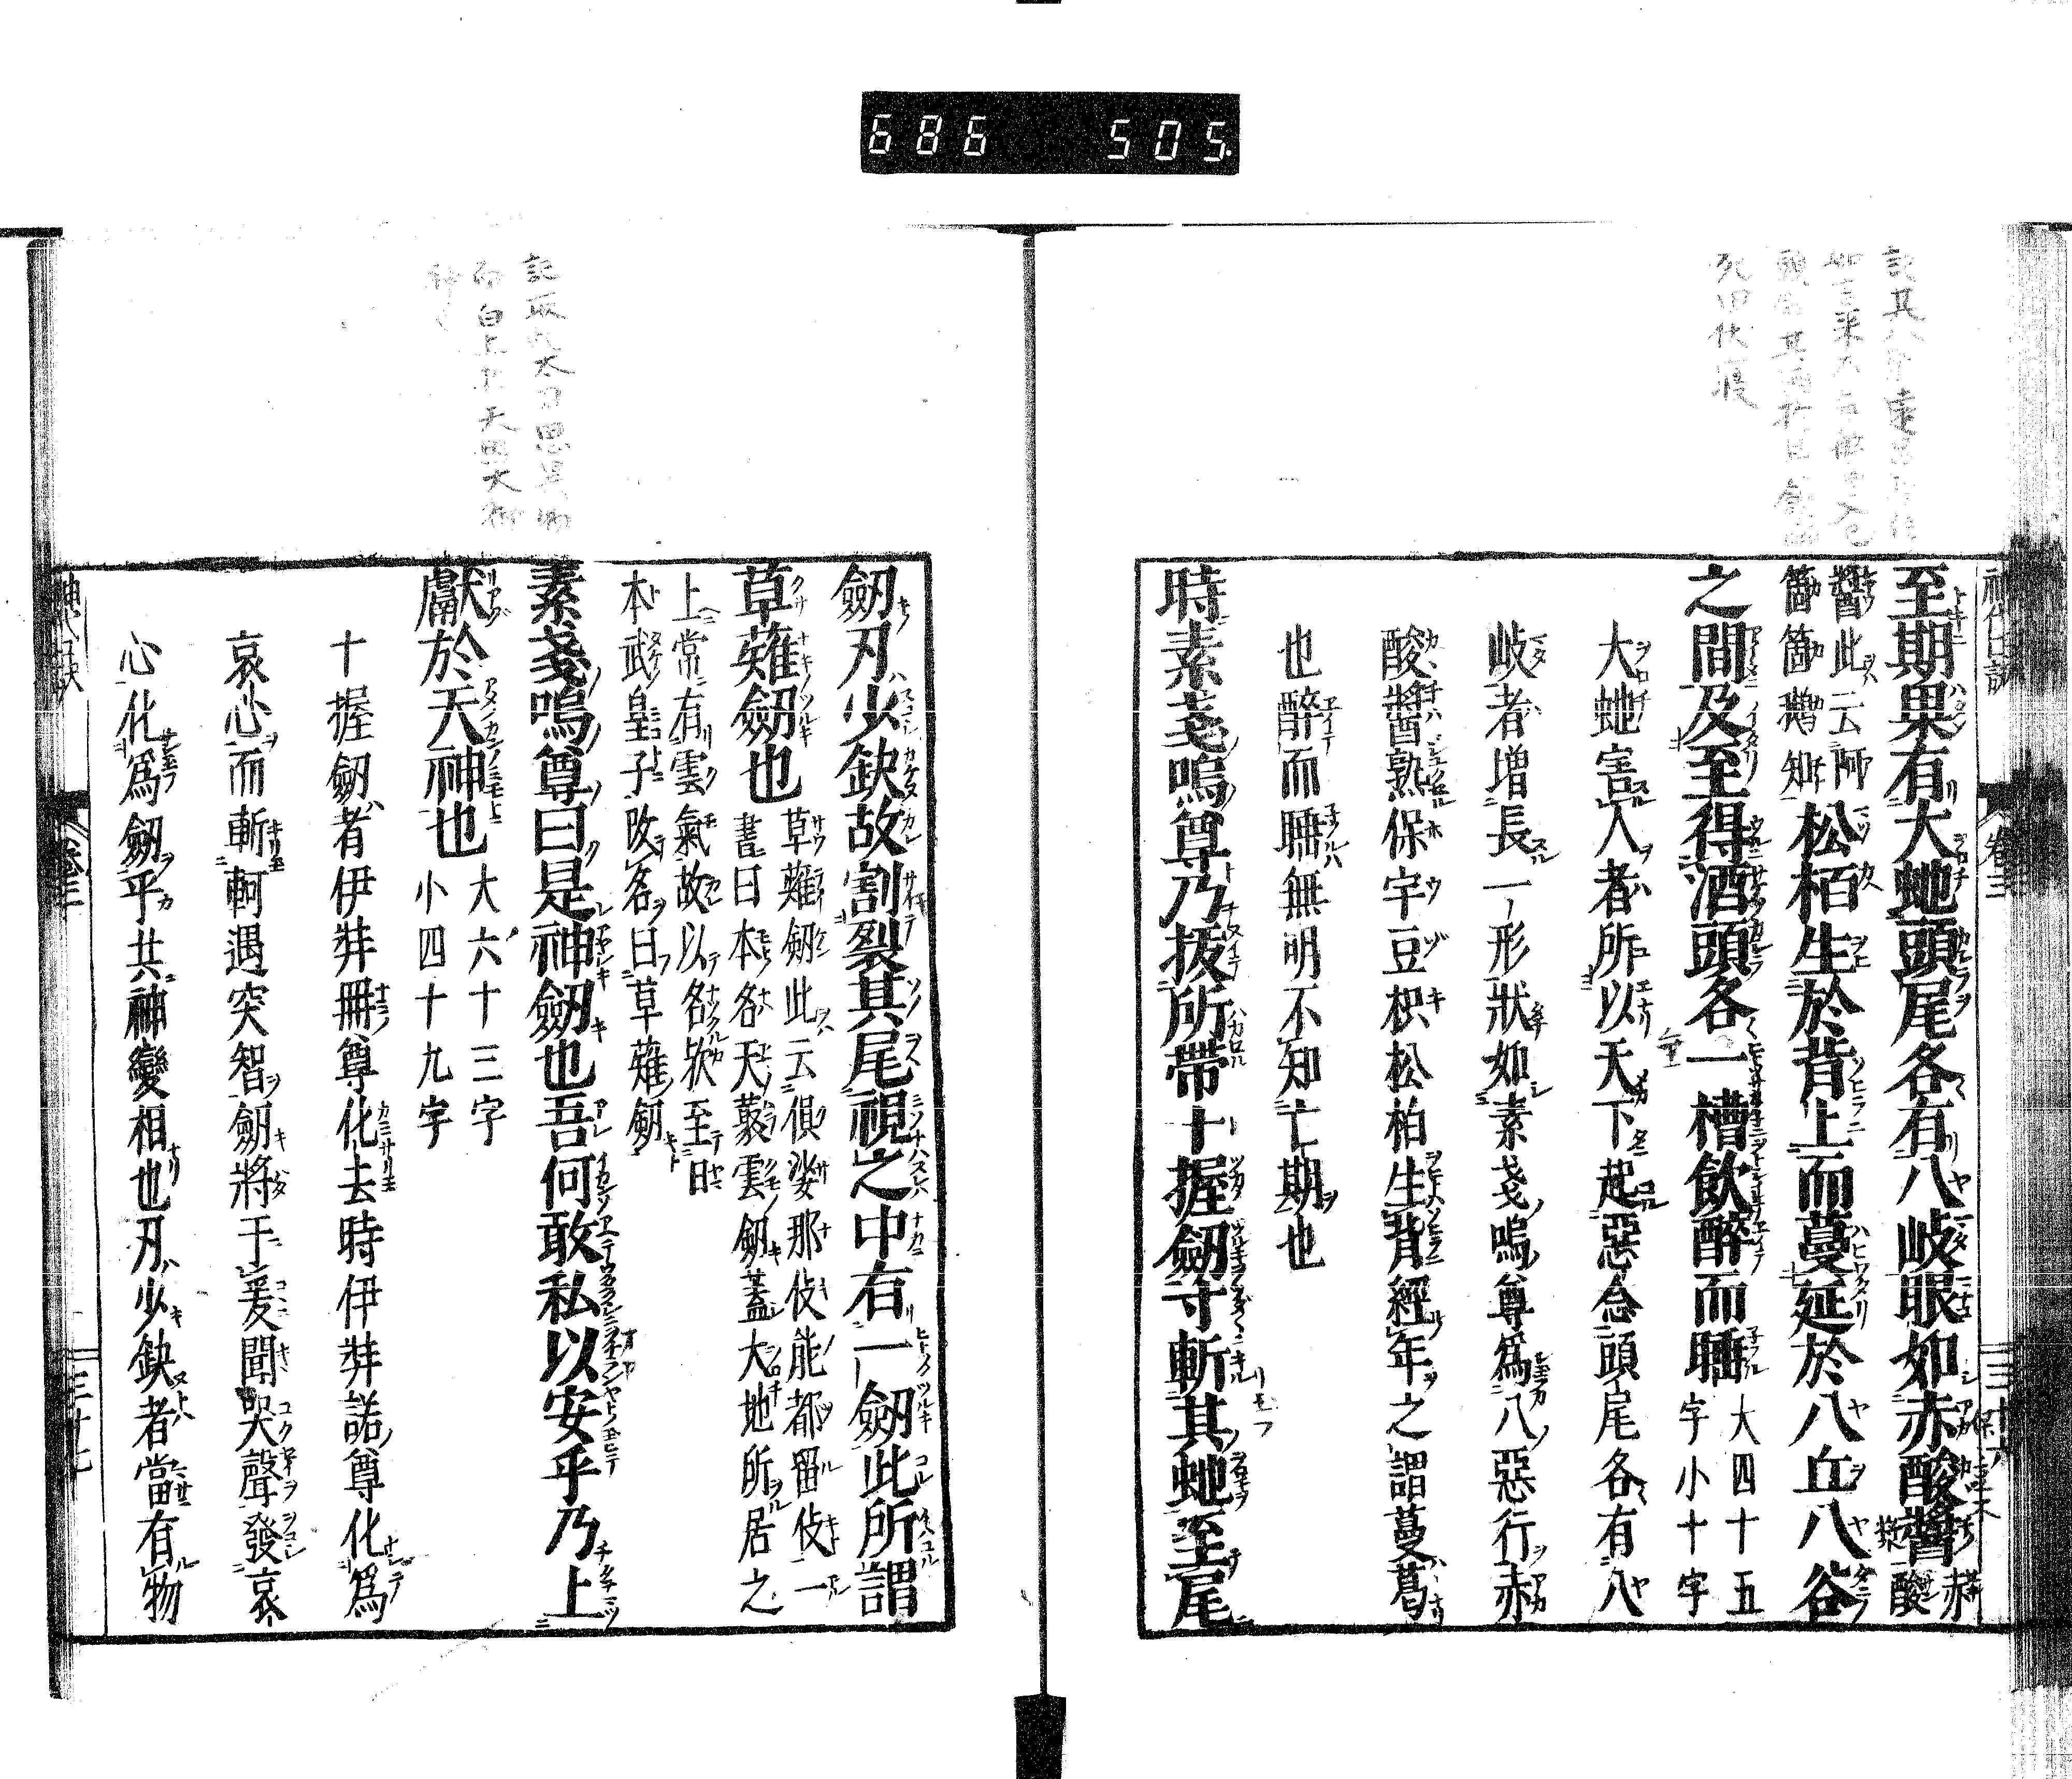 686 505
至期果有大虵頭尾各有八岐眼如赤酸醬赤酸
醬此云阿
箇箇鵝知松栢生於背上而蔓延於八丘八谷
之間及至得酒頭各一槽飲醉而睡大四十五
字小十字
大虵害人者所以天下起惡念頭尾各有八
岐者増長一形狀如素戔嗚尊爲八惡行赤
酸醬熟保宇豆枳松柏生背經年之謂蔓蔦
也醉而睡無明不知亡期也
時素戔嗚尊乃抜所帶十握劔寸斬其虵至尾
劔刃少缺故割裂其尾視之中有一劔此所謂
草薙劔也草薙劔此云倶娑那伎能都畱伎一
書曰本名天藂雲劔蓋大虵所居之
上常有雲氣故以名歟至日
本武皇子改名曰草薙劔
素戔嗚尊曰是神劔也吾何敢私以安乎乃上
獻於天神也大六十三字
小四十九字
十握劔者伊弉冊尊化去時伊弉諾尊化爲
哀心而斬軻遇突智劔將于爰聞哭聲發哀
心化爲劔乎共神變相也刃少缺者當有物